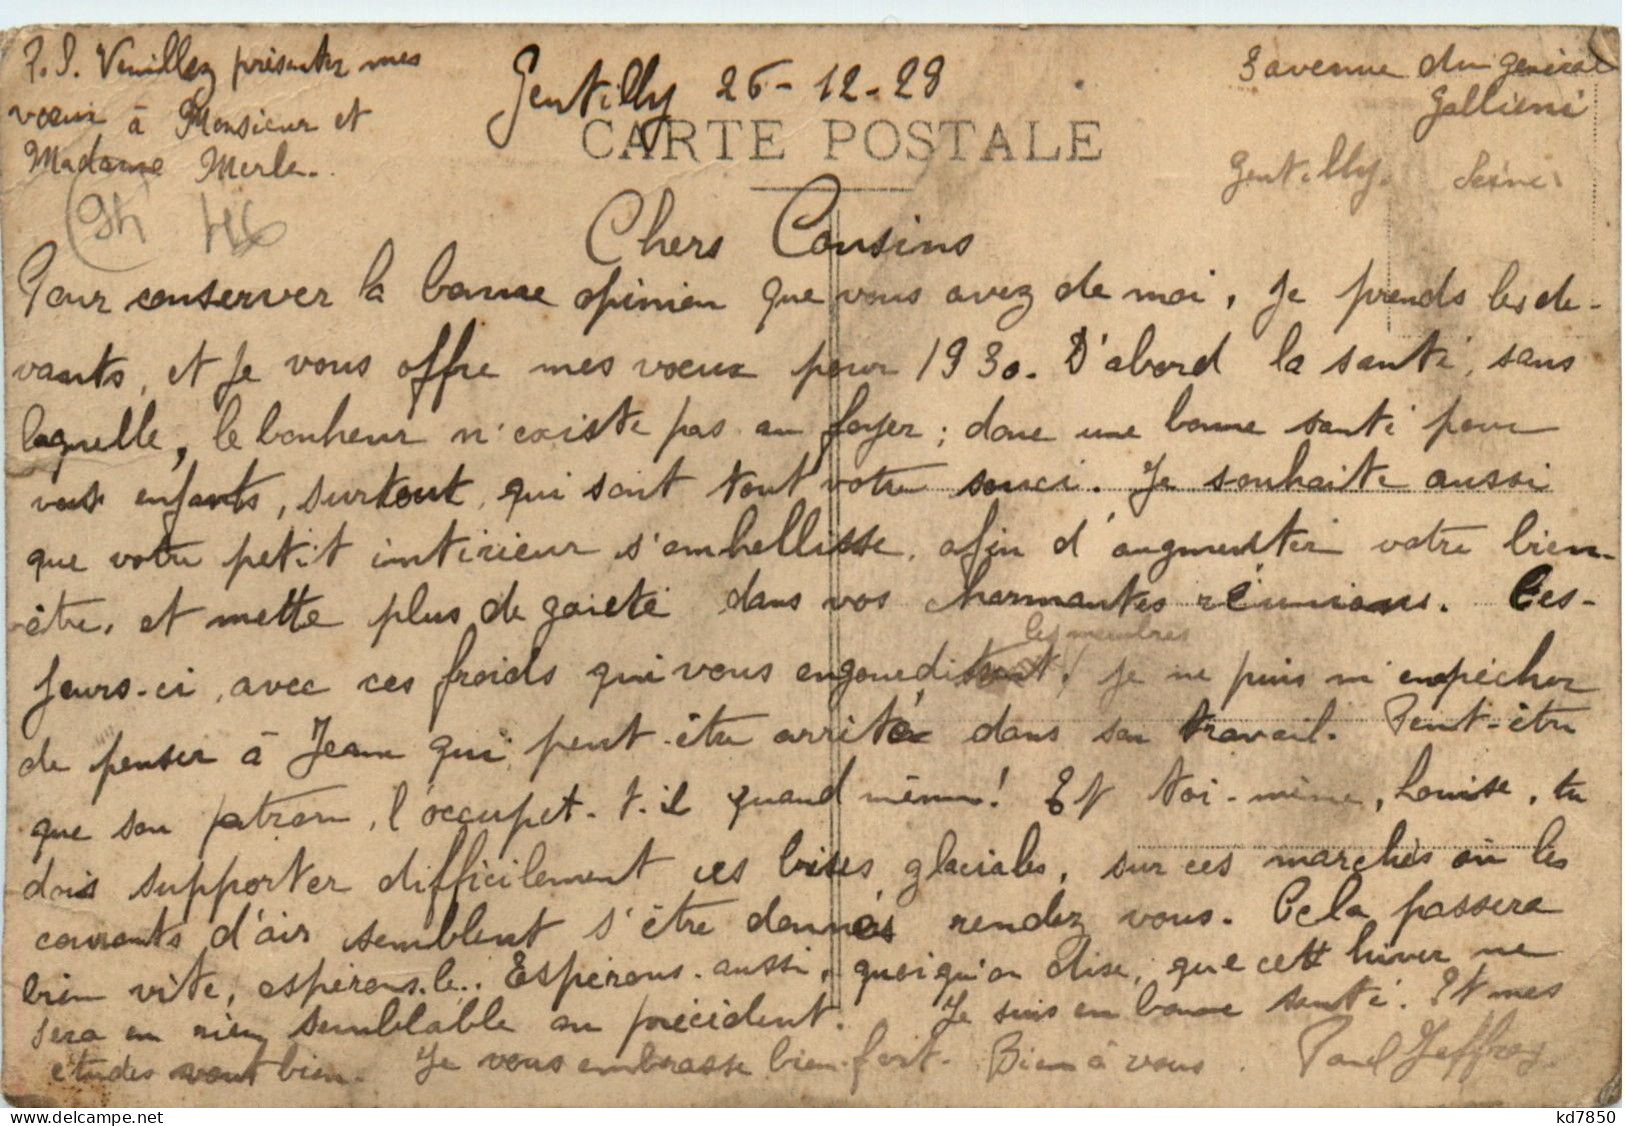 P.S. Veuillez présenter mes
vœux à Monsieur et
Madame Merle.
Gentilly 26-12-29
3 avenue du général
Gallieni
Gentilly. Seine.
CARTE POSTALE
Chers Cousins
Pour conserver la bonne opinion que vous avez de moi, je prends les de-
vants, et je vous offre mes vœux pour 1930. D'abord la santé, sans
laquelle, le bonheur n'existe pas au foyer; donc une bonne santé pour
vos enfants, surtout, qui sont tout votre souci. Je souhaite aussi
que votre petit intérieur s'embellisse, afin d'augmenter votre bien-
être, et mette plus de gaieté dans vos charmantes réunions. Ces-
les membres
jours-ci, avec ces froids qui vous engourdissent, je ne puis m'empêcher
de penser à Jean qui peut-être arrêté dans son travail. Peut-être
que son patron, l'occupet-t-il quand même! Et toi-même, Louise, tu
dois supporter difficilement ces brises glaciales, sur ces marchés où les
courants d'air semblent s'être donnés rendez vous. Cela passera
bien vite, espérons-le.. Espérons-aussi, quoiqu'on dise, que cett hiver ne
sera en rien semblable au précédent. Je suis en bonne santé. Et mes
études vont bien. Je vous embrasse bien-fort. Bien à vous. Paul Jeffroy.
kd7850